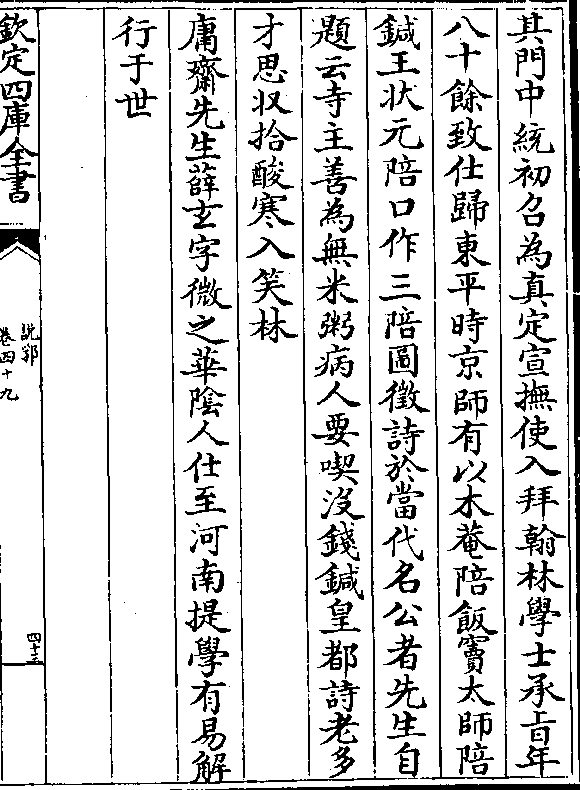 其門中統初召為真定宣撫使入拜翰林學士承旨年
八十餘致仕歸東平時京師有以木菴陪飯竇太師陪
鍼王狀元陪口作三陪圖徵詩於當代名公者先生自
題云寺主善為無米粥病人要喫沒錢鍼皇都詩老多
才思収拾酸寒入笑林
庸齋先生薛玄字微之華陰人仕至河南提學有易解
行于世
欽定四庫全書
說郛
卷四十九
四十三